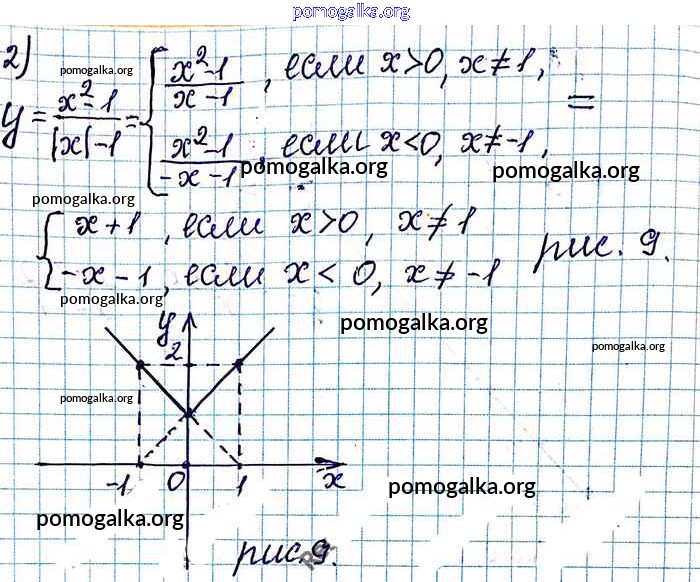 pomogalka.org
2)
pomogalka.org
y = x²-1 / |x|-1 = { x²-1 / x-1 , если x>0, x≠1,
x²-1 / -x-1 , если x<0, x≠-1, =
pomogalka.org
pomogalka.org
pomogalka.org
{ x+1 , если x>0, x≠1
-x-1, если x<0, x≠-1 рис. 9.
pomogalka.org
pomogalka.org
y
2
pomogalka.org
pomogalka.org
-1 0 1 x
pomogalka.org
pomogalka.org
рис. 9.